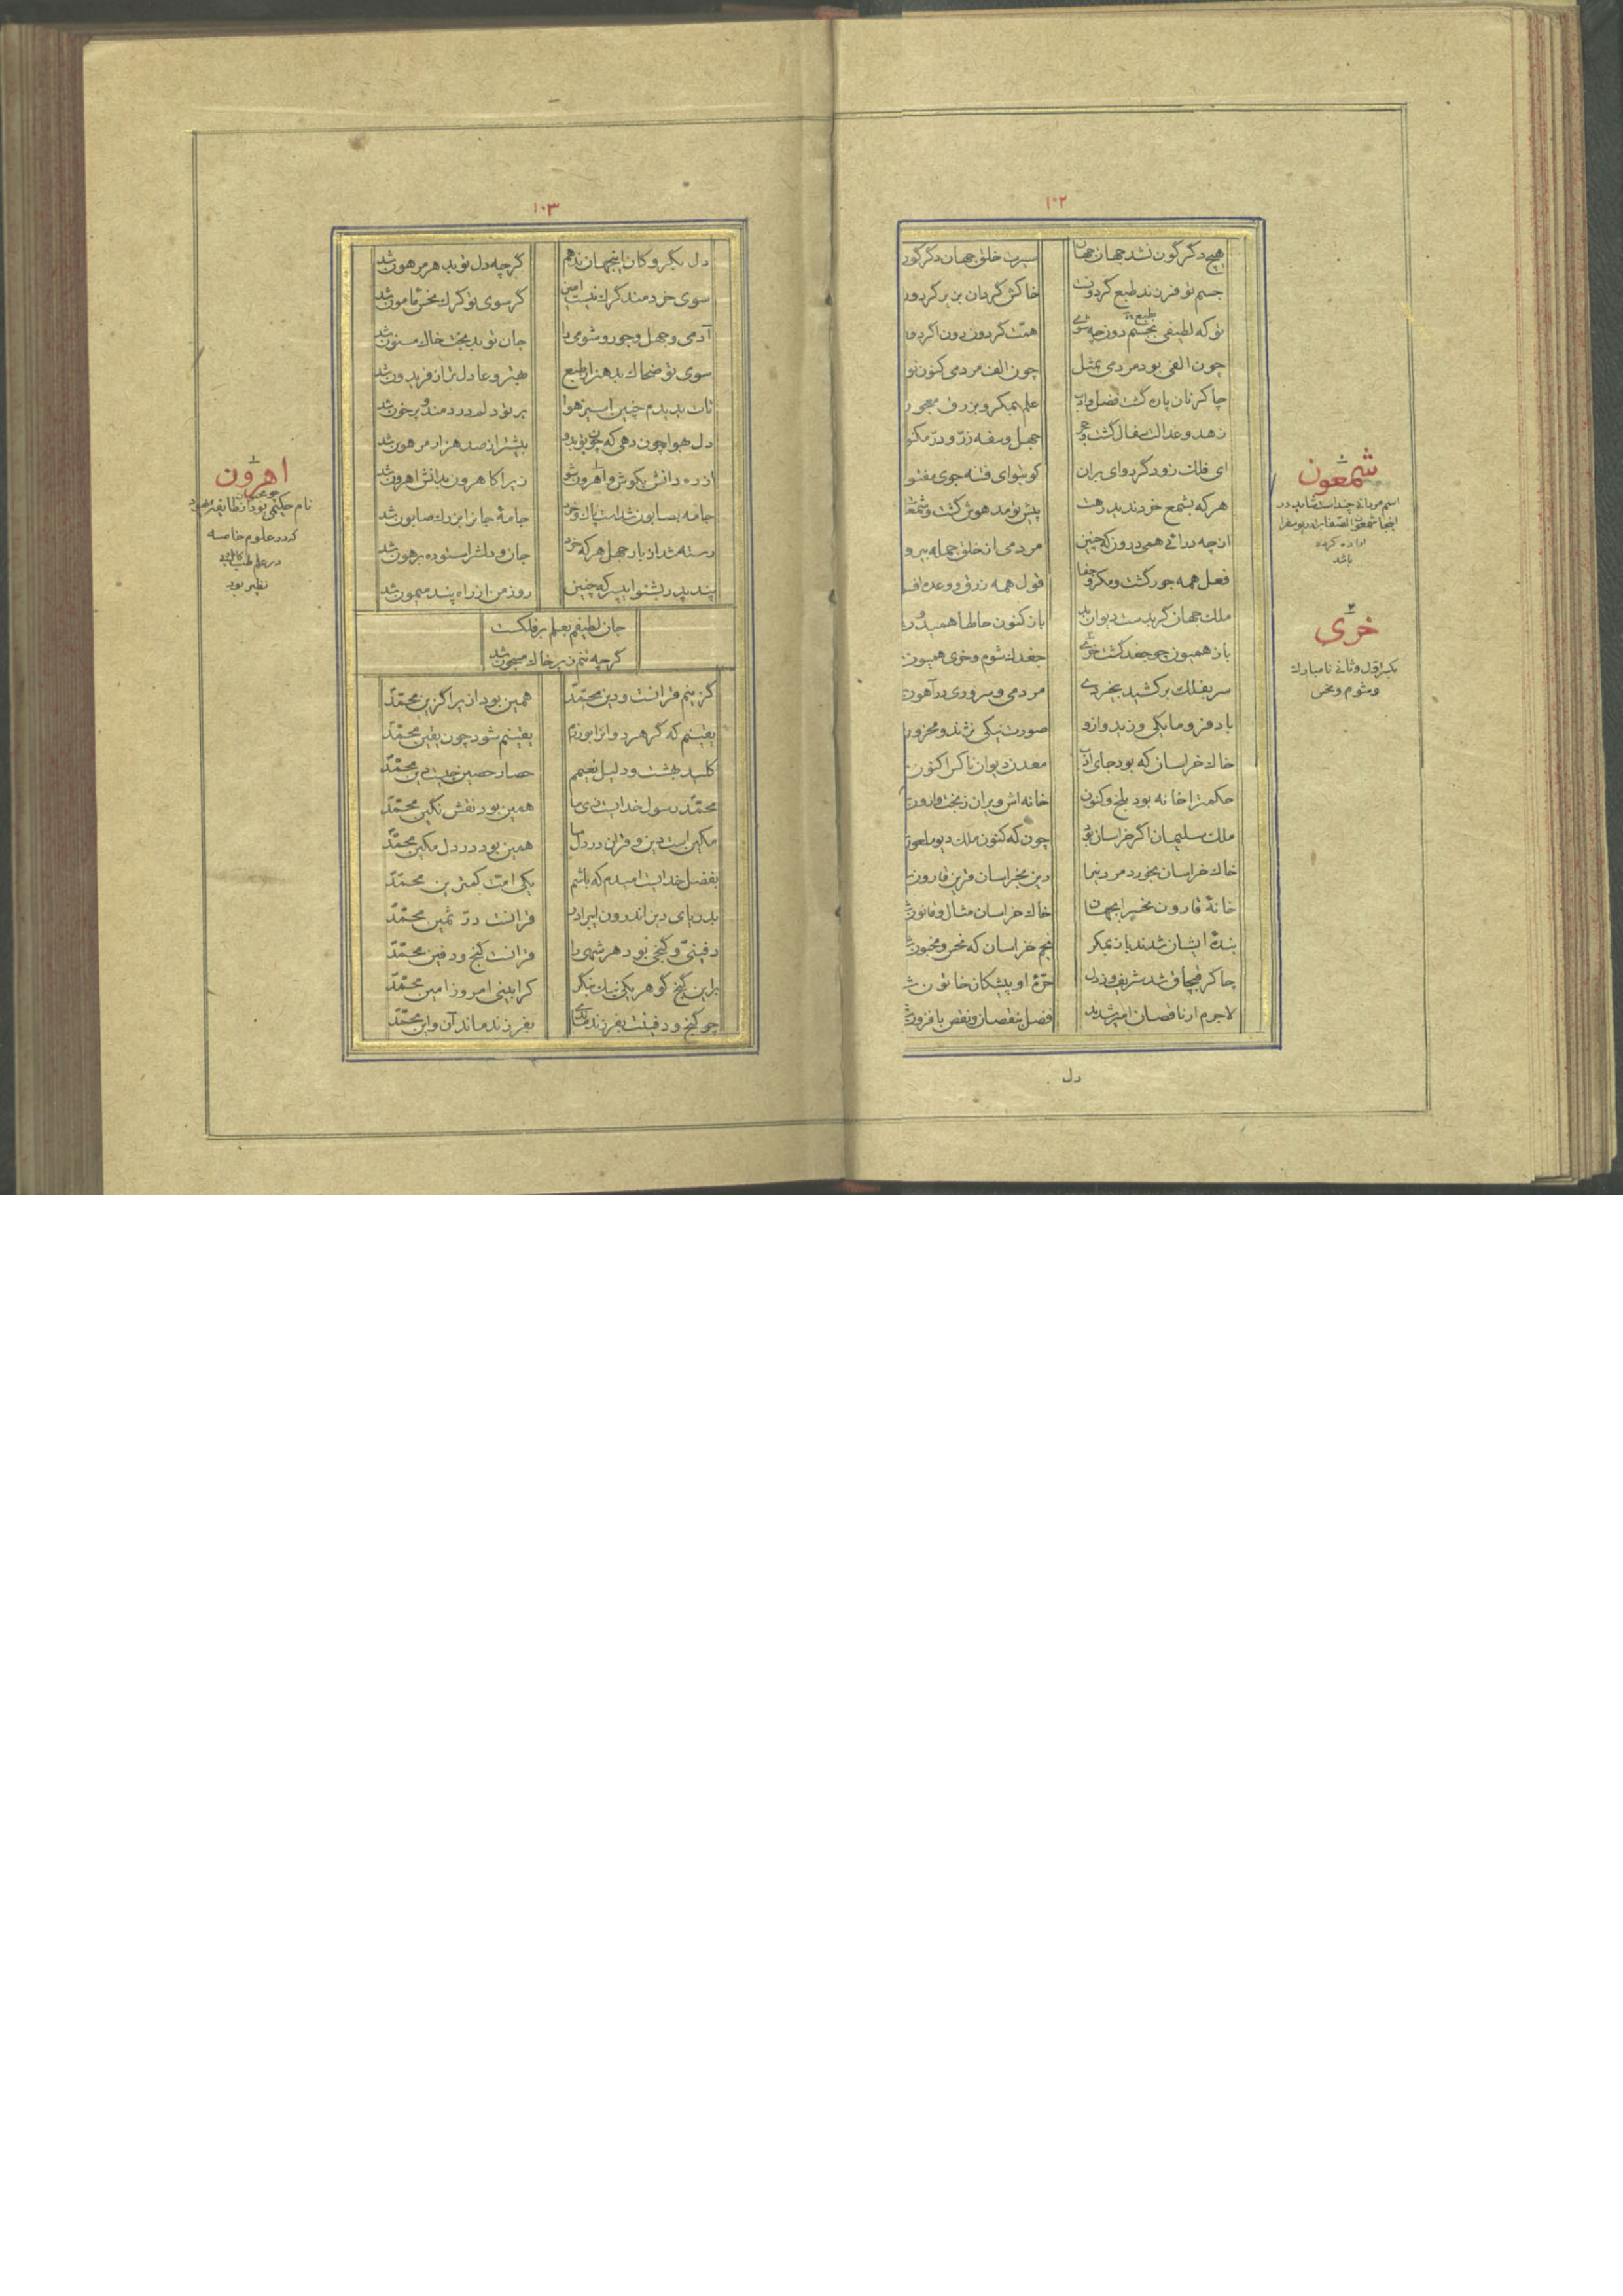 ۱۰۲
هیچ دگرگون نشد جهان جهان
سیرت خلق جهان دگرگون
جسم تو فرزند طبع گردونست
خاکش گردان بن بر گردون
تو که لطیفی بجسم دون چه شوی
همت گردون دون اگر دون
چون الفی بود مردمی بمثل
چون الف مردمی کنون نو
چاکر نان پاره گشت فضل و ادب
علم بمکر و بزرق معجون
زهد و عدالت سفال گشت و حجر
جهل و سفه زر و در مکنو
ای فلک زودگرد وای بران
کو بتو ای فتنه جوی مفتو
هر که بشمع خرد ندید رهت
پیش تو مدهوش گشت و شمعو
از چه درآئی همی درون که چنین
مردمی از خلق جمله بیرو
فعل همه جور گشت و مکر و جفا
قول همه زرق و وعده اف
ملک جهان گر بدست دیوان بد
باز کنون حالها همیدون
باز همایون چو جغد گشت خری
جغدك شوم و خری همیون
سر بفلك بر کشید بیخردی
مردمی و سروری در آهون
باد فرومایگی وزید و ازو
صورت نیکی نژند و محزون
خاك خراسان که بود جای ادب
معدن دیوان ناکس اکنون
حکمت را خانه بود بلخ و کنون
خانه اش ویران ز بخت وارون
ملك سلیمان اگر خراسان بود
چون که کنون ملك دیو ملعون
خاك خراسان بخورد مر دینرا
دین بخراسان قرین قارون
خانهٔ قارون نحس را بجهان
خاك خراسان مثال و قانون
بندهٔ ایشان شدند باز بمکر
نجم خراسان که نحس و مخبون
چاکر قپچاق شد شریف و ز دل
حرهٔ او پیشکار خاتون ش
لاجرم ار ناقصان امیر شدند
فضل بنقصان و نقص بافزون
دل
شمعون
اسم مردان چند است شاید در
اینجا شمعون الصفا
اراده کرده
باشد
خری
بکسر اول و ثانی نامبارك
و شوم و نحس
۱۰۳
دل بگروگان اینجهان ندهم
گرچه دل تو بدهر مرهون شد
سوی خردمند گرك نیست امین
گر سوی تو گرك نحس مامون شد
آدمی و جهل و جور و شومی را
جان تو بدبخت خاك مسنون شد
سوی تو ضحاك بدهنر ز طبع
بهتر و عادلتر از فریدون شد
تات بدیدم چنین اسیر هوا
بر تو دلم دردمند و پرخون شد
دل بهوا چون دهی که چون تو بدو
بیشتر از صد هزار مرهون شد
از ره دانش بکوش و اهرون شو
زیرا کاهرون بدانش اهرون شد
جامه بصابون شدست پاك و خرد
جامهٔ جانرا بزرك صابون شد
رسته شد از بار جهل هر که خرد
جان و دلش را ستوده برهون شد
پند پدر بشنو ای پسر که چنین
روز من از راه پند میمون شد
جان لطیفم بعلم بر فلکست
گرچه تنم زیر خاك مسجون شد
گزینم قرانست و دین محمد
همین بود ازیرا گزین محمد
یقینم که گر هردوانرا بورزم
یقینم شود چون یقین محمد
کلید بهشت و دلیل نعیمم
حصار حصین چیست دین محمد
محمد رسول خدایست زی ما
همین بود نقش نگین محمد
مکین است دین و قران در دل ما
همین بود در دل مکین محمد
بفضل خدایست امیدم که باشم
یکی امت کمترین محمد
بدریای دین اندرون ای برادر
قرانست در ثمین محمد
دفینی و گنجی بود هر شهی را
قرانست گنج و دفین محمد
برین گنج و گوهر یکی نیك بنگر
کرا بینی امروز امین محمد
چو گنج و دفینت بفرزند ماندی
بفرزند ماند آن و این محمد
اهرون
نام حکیمی بود از طایفه یهود
که در علوم خاصه
در علم طب
نظیر بود